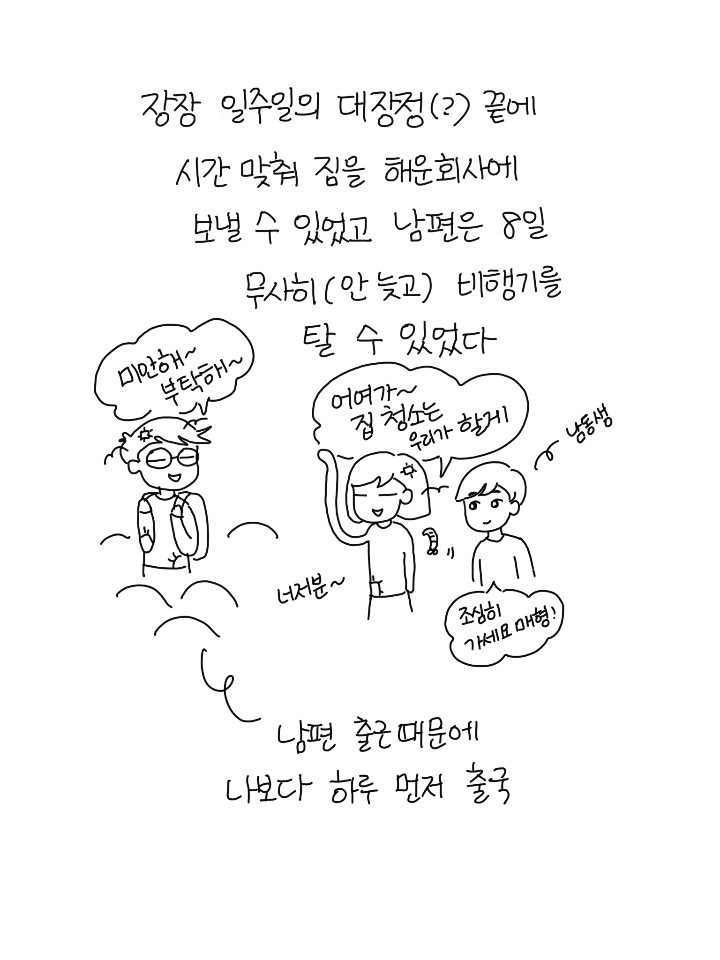 장장 일주일의 대장정(?) 끝에
시간 맞춰 짐을 해운회사에
보낼 수 있었고 남편은 8일
무사히(안 늦고) 비행기를
탈 수 있었다
미안해~
부탁해~
어여가~
집 청소는
우리가 할게
남동생
너저분~
조심히
가세요 매형!
남편 출근때문에
나보다 하루 먼저 출국